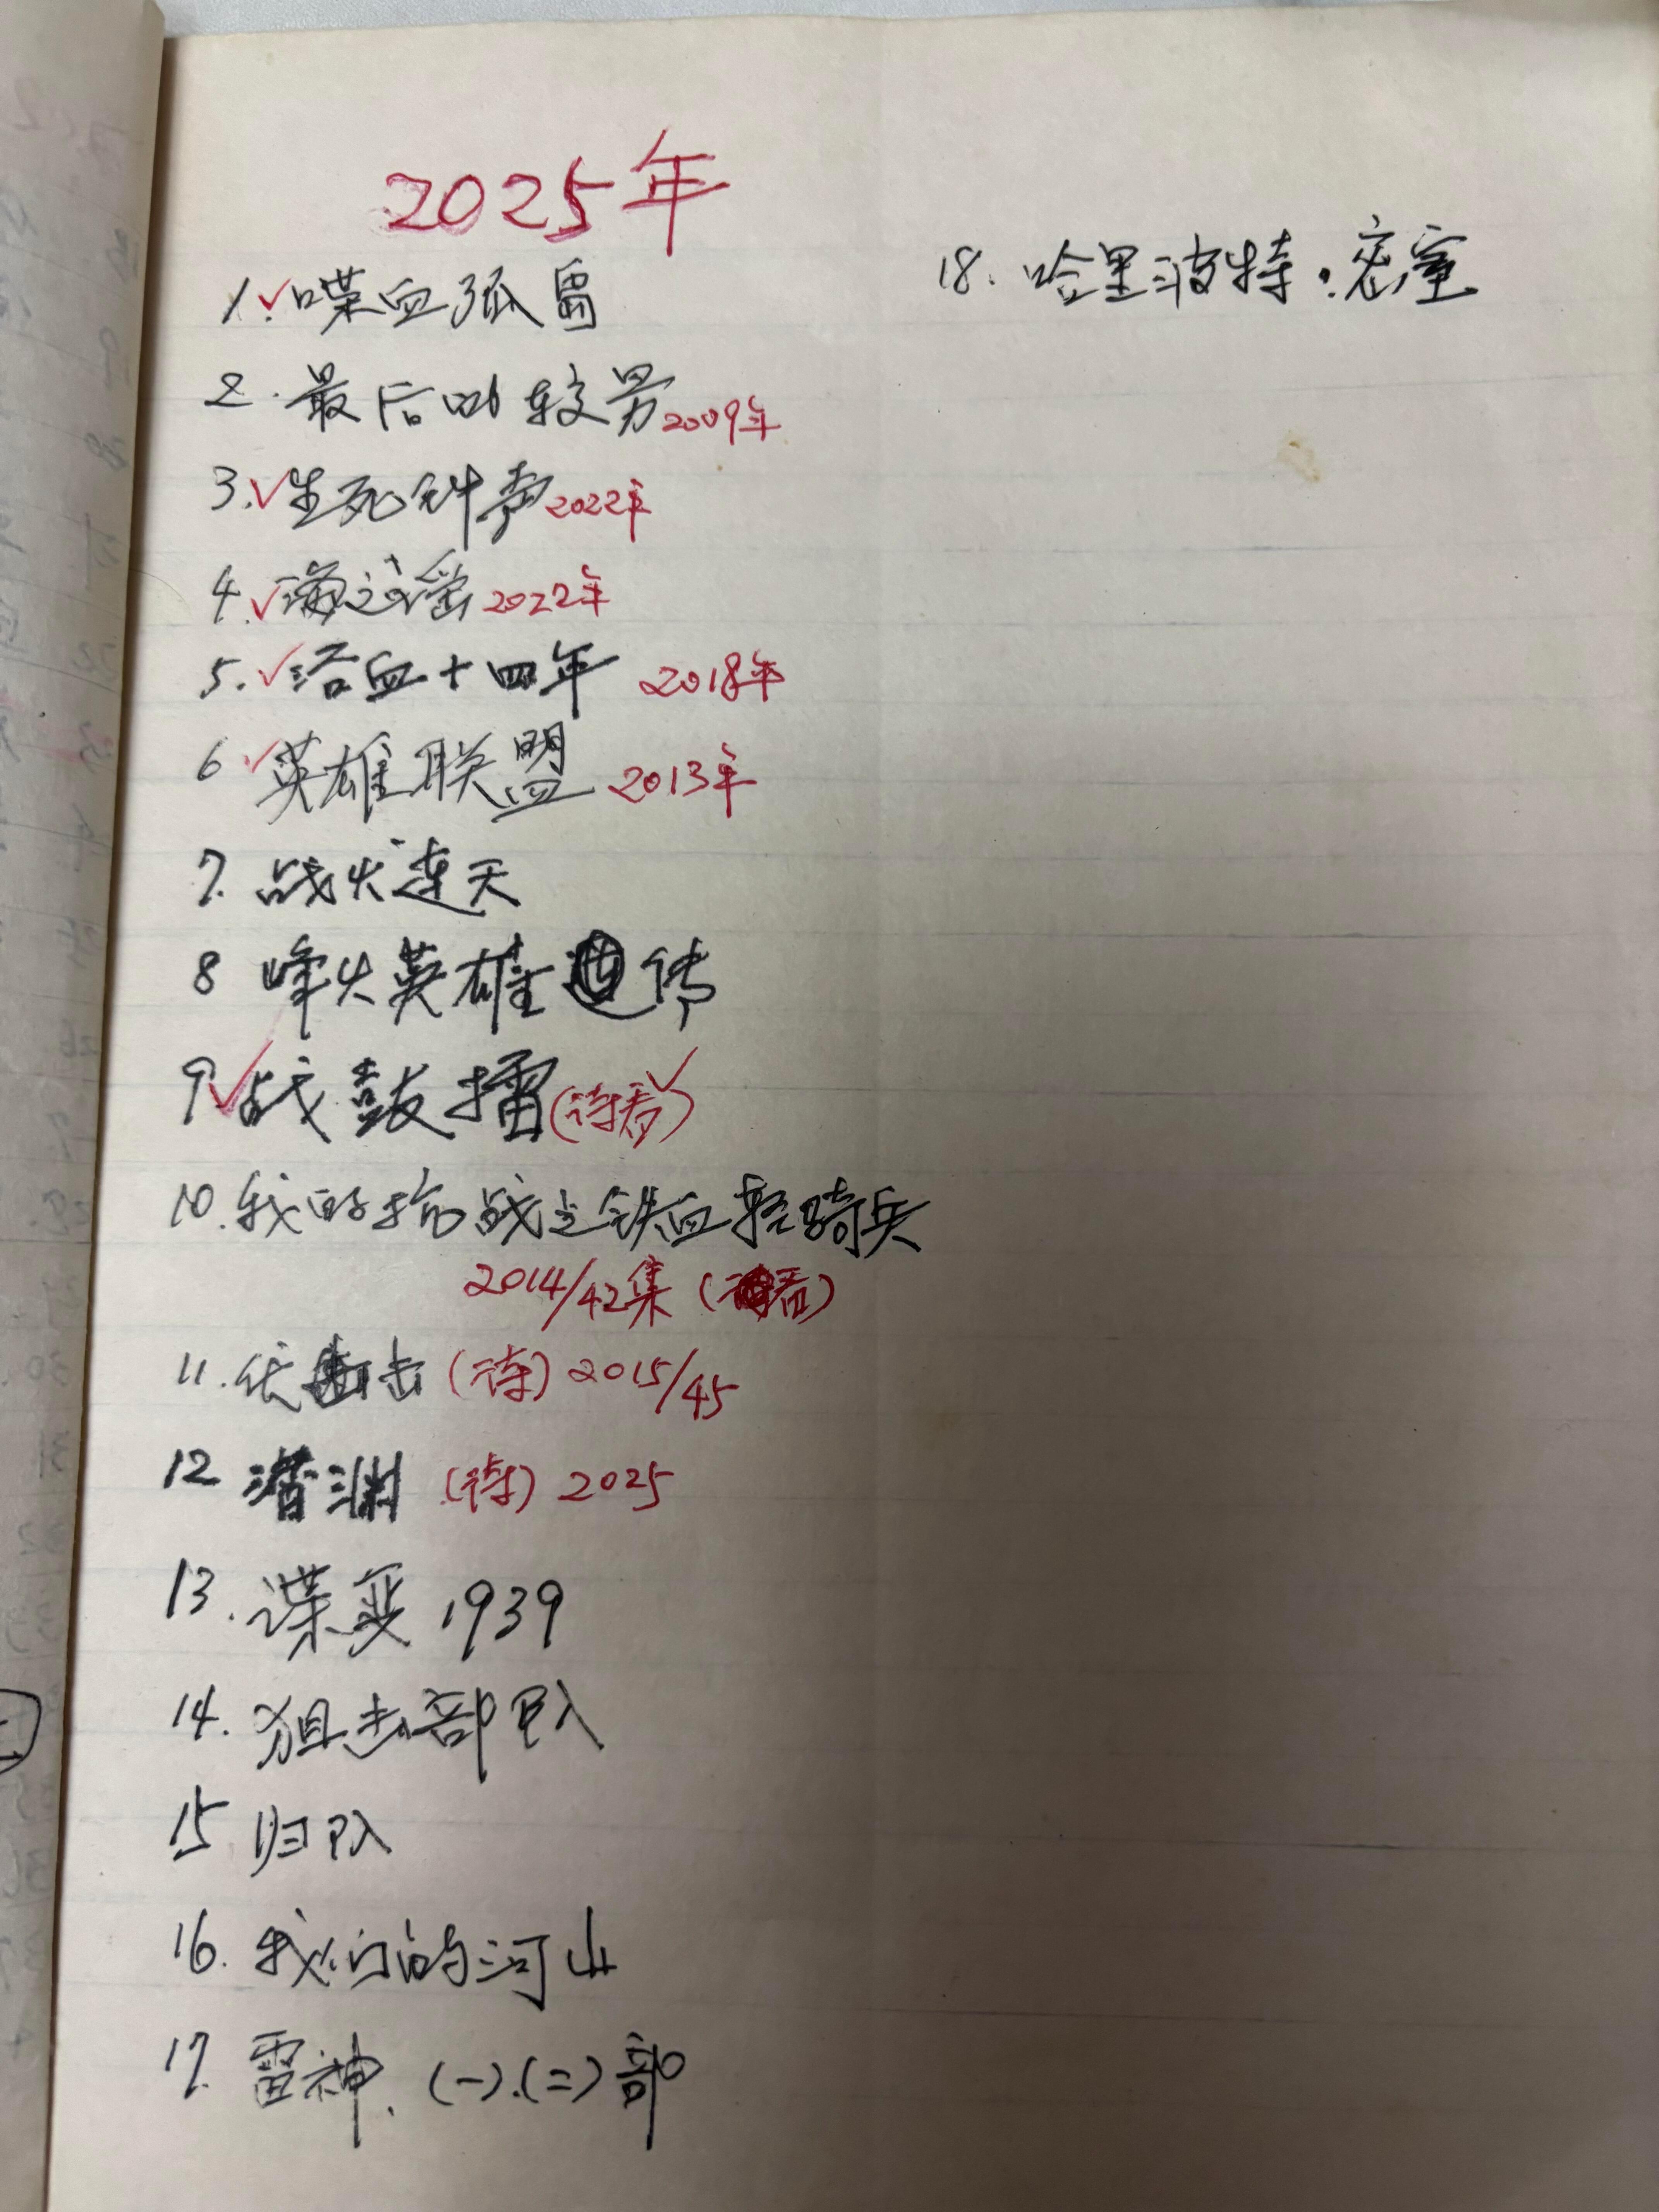 2025年
1.✓喋血孤岛
2.最后的较男2009年
3.✓生死钟声2022年
4.✓海之谣2022年
5.✓浴血十四年 2018年
6 ✓英雄联盟 2013年
7.战火连天
8 烽火英雄传
9✓战鼓擂(待看)✓
10.我的抗战之铁血轻骑兵
2014/42集(看)
11.伏击(待)2015/45
12 潜渊(待)2025
13.谍变1939
14.狙击部队
15 归队
16.我们的河山
17.雷神.(一).(二)部
18.哈里波特·密室